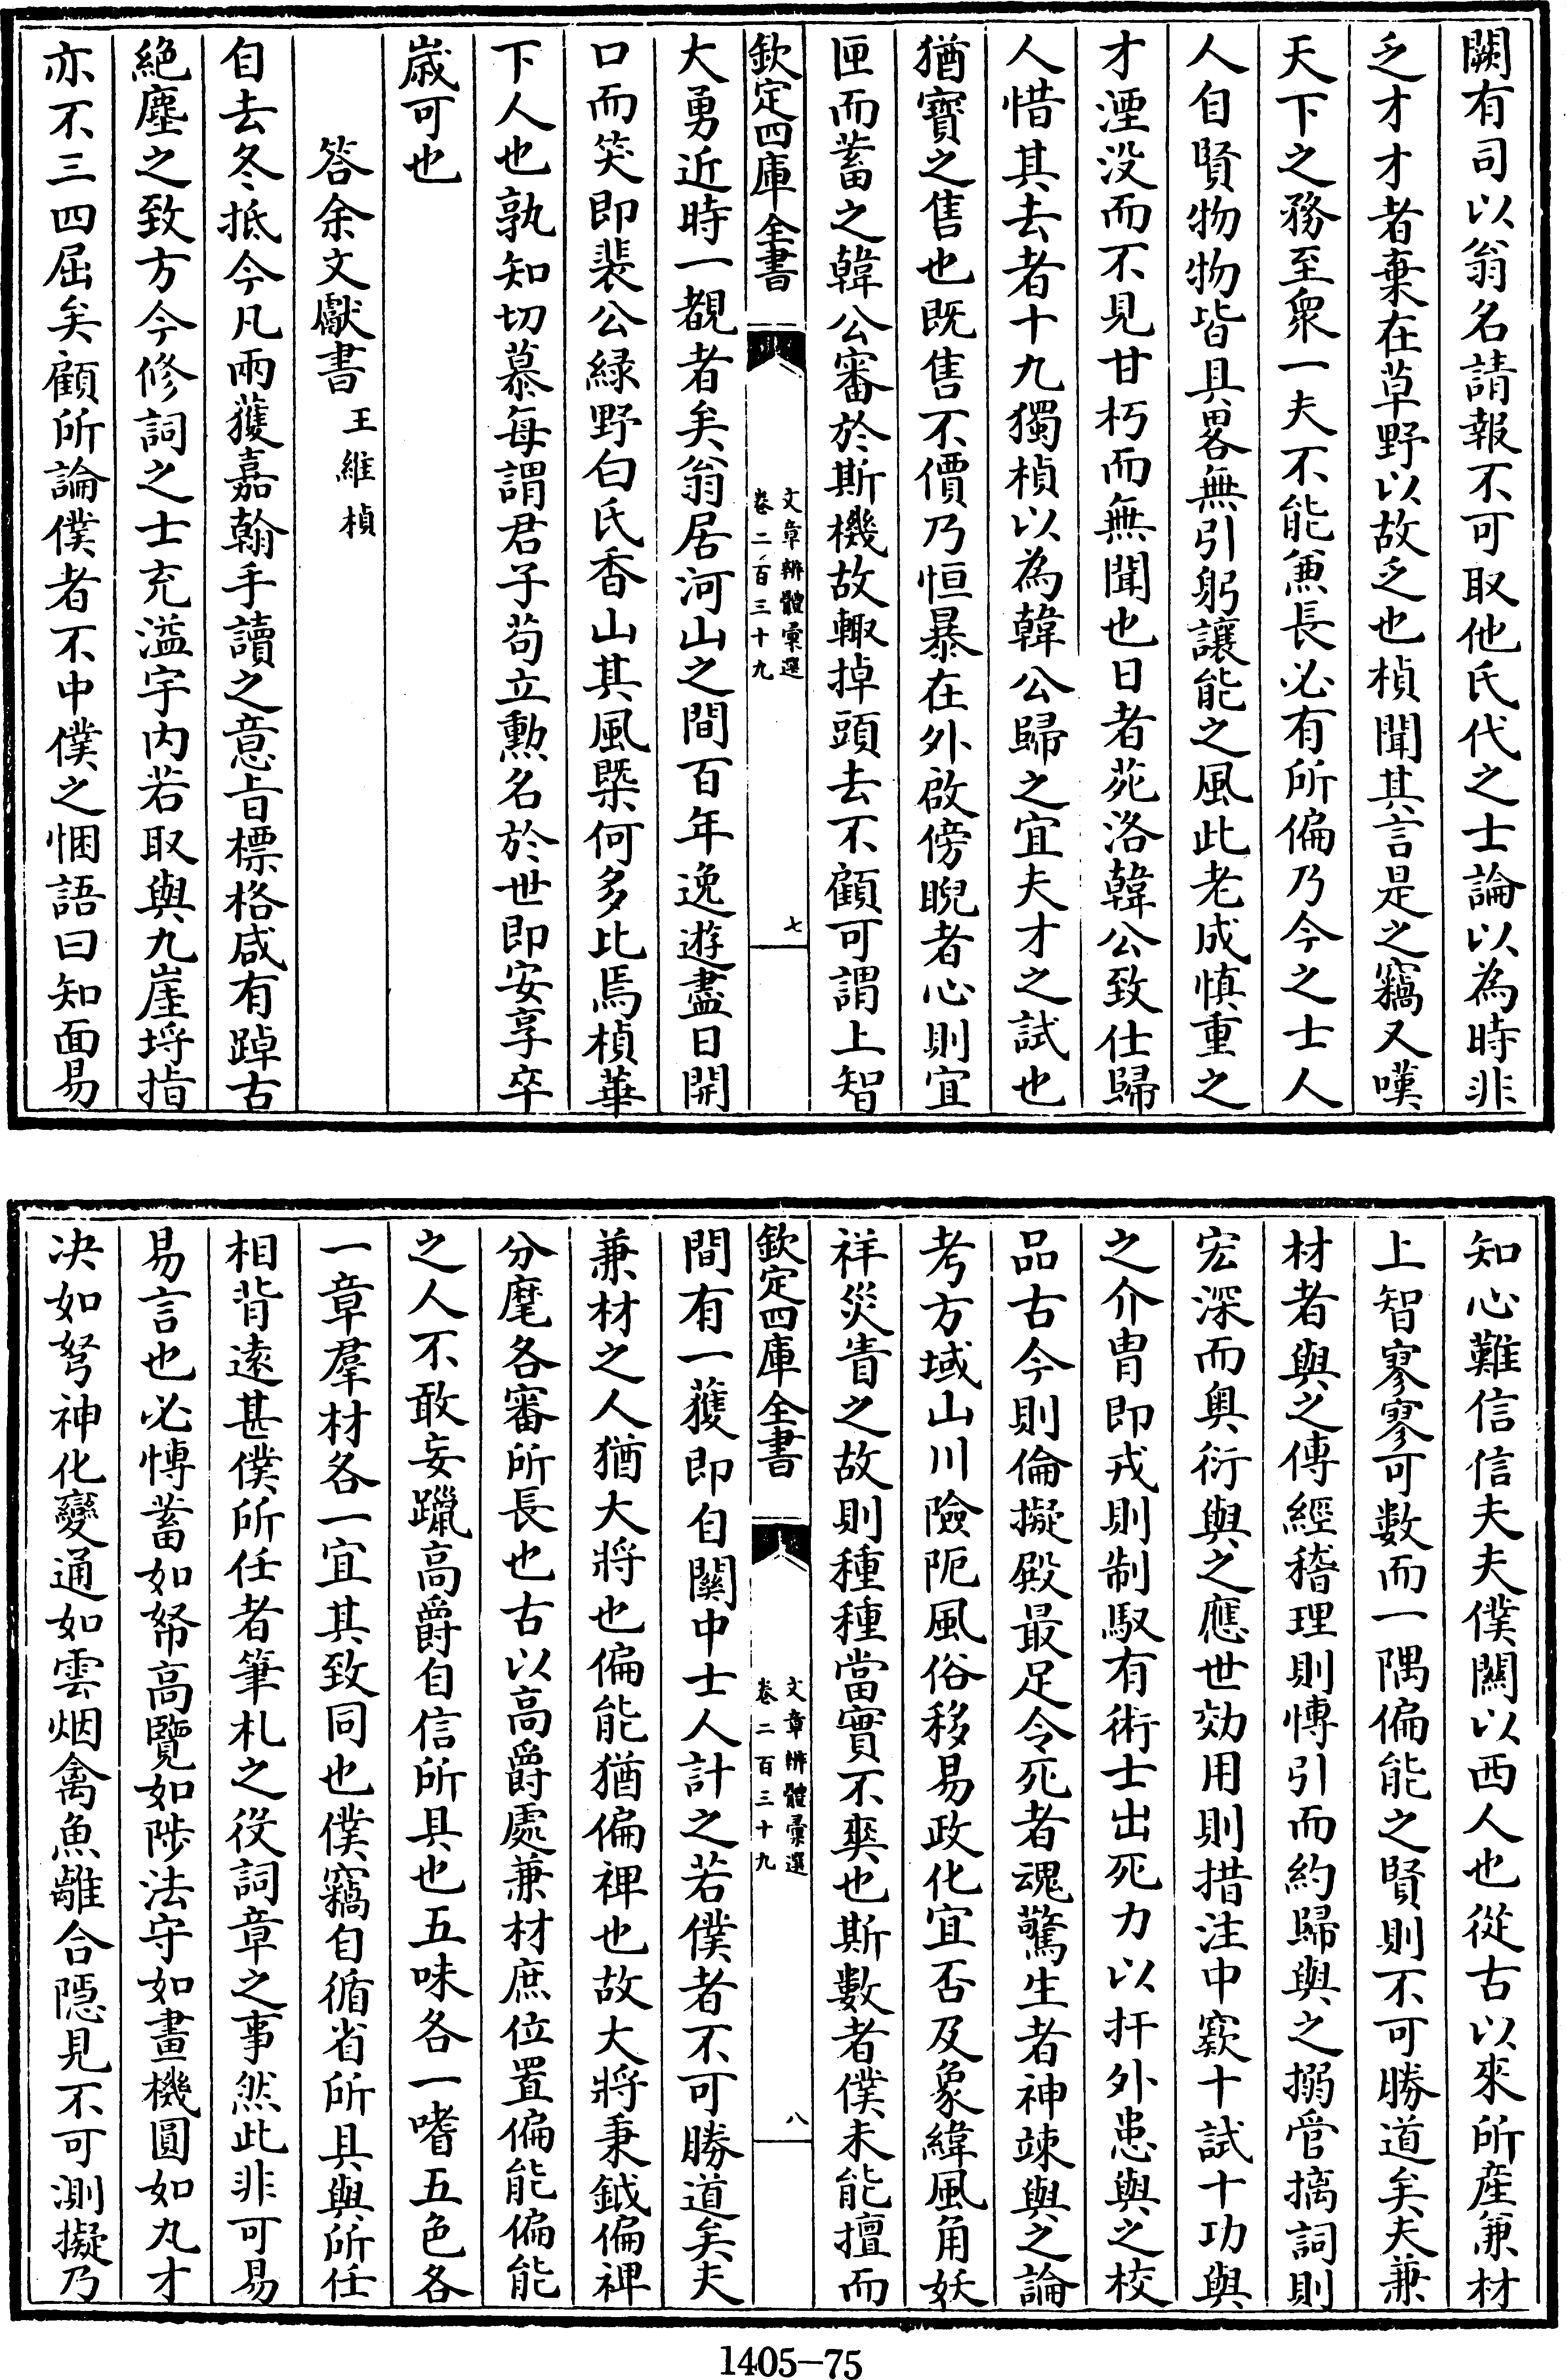 闕有司以翁名請報不可取他氏代之士論以為時非
乏才才者棄在草野以故乏也楨聞其言是之竊又嘆
天下之務至衆一夫不能兼長必有所偏乃今之士人
人自賢物物皆具畧無引躬讓能之風此老成慎重之
才湮没而不見甘朽而無聞也日者苑洛韓公致仕歸
人惜其去者十九獨楨以為韓公歸之宜夫才之試也
猶寶之售也既售不價乃恒暴在外啟傍睨者心則宜
匣而蓄之韓公審於斯機故輙掉頭去不顧可謂上智
欽定四庫全書
文章辨體彙選
卷二百三十九
七
大勇近時一覩者矣翁居河山之間百年逸遊盡日開
口而笑即裴公緑野白氏香山其風槩何多比焉楨華
下人也孰知切慕每謂君子茍立勲名於世即安享卒
嵗可也
答余文獻書 王維楨
自去冬抵今凡兩獲嘉翰手讀之意㫖標格咸有踔古
絶塵之致方今修詞之士充溢宇内若取與九崖埒指
亦不三四屈矣顧所論僕者不中僕之悃語曰知面易
知心難信信夫夫僕闗以西人也從古以來所産兼材
上智寥寥可數而一隅偏能之賢則不可勝道矣夫兼
材者與之傳經稽理則愽引而約歸與之搦管摛詞則
宏深而奥衍與之應世効用則措注中窽十試十功與
之介胄即戎則制馭有術士出死力以扞外患與之校
品古今則倫擬殿最足令死者魂驚生者神竦與之論
考方域山川險阨風俗移易政化宜否及象緯風角妖
祥災眚之故則種種當實不爽也斯數者僕未能擅而
欽定四庫全書
文章辨體彙選
卷二百三十九
八
間有一獲即自闗中士人計之若僕者不可勝道矣夫
兼材之人猶大將也偏能猶偏禆也故大將秉鉞偏禆
分麾各審所長也古以高爵處兼材庶位置偏能偏能
之人不敢妄躐高爵自信所具也五味各一嗜五色各
一章羣材各一宜其致同也僕竊自循省所具與所任
相背逺甚僕所任者筆札之役詞章之事然此非可易
易言也必愽蓄如帑高覽如陟法守如畫機圓如丸才
决如弩神化變通如雲烟禽魚離合隱見不可測擬乃
1405-75